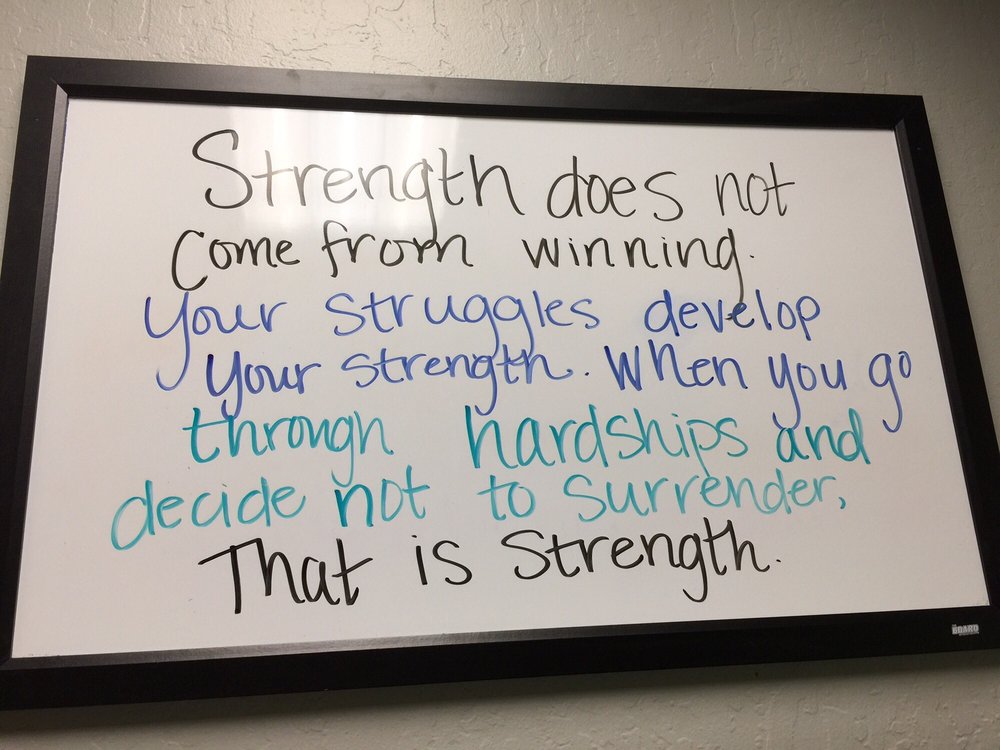 Strength does not
come from winning.
Your struggles develop
your strength. When you go
through hardships and
decide not to surrender,
That is strength.
BOARD